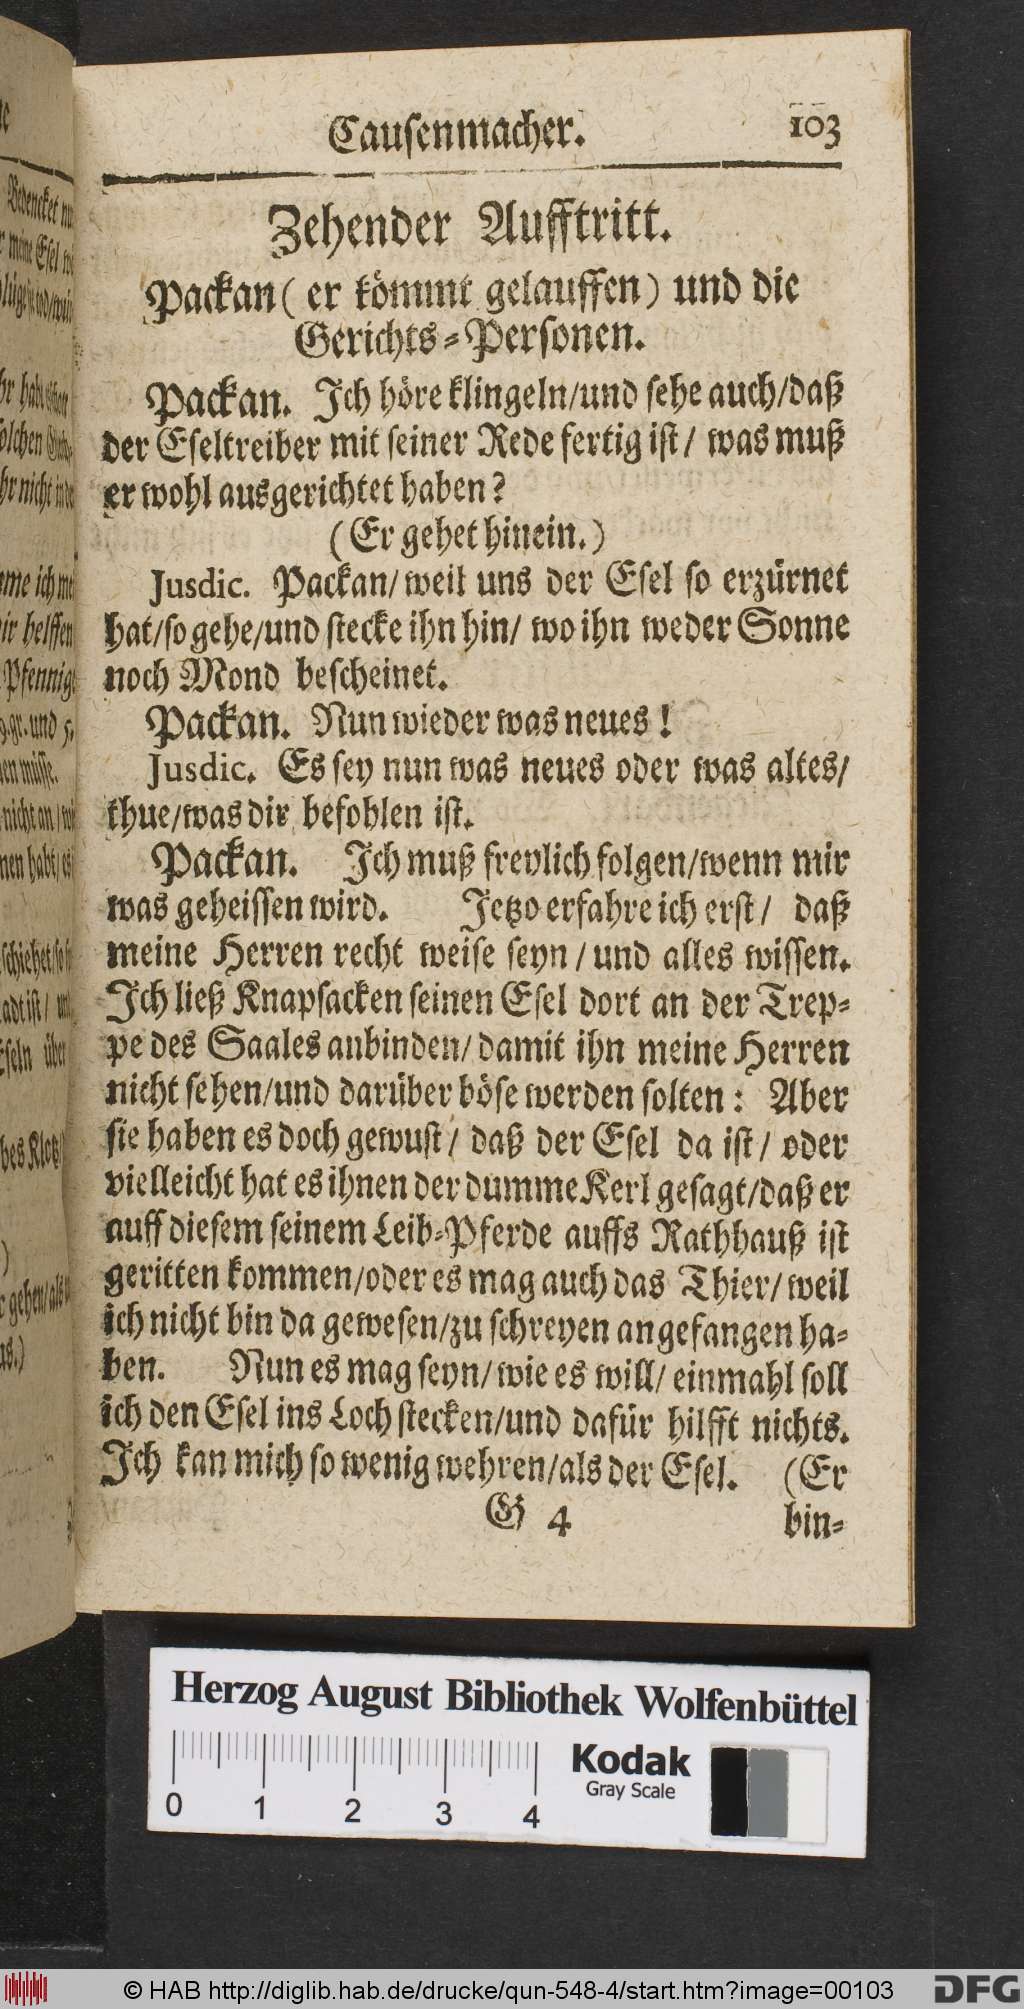 Causenmacher. 103
Zehender Aufftritt.
Packan (er kömmt gelauffen) und die
Gerichts-Personen.
Packan. Ich höre klingeln/und sehe auch/daß
der Eseltreiber mit seiner Rede fertig ist/ was muß
er wohl ausgerichtet haben?
(Er gehet hinein.)
Jusdic. Packan/ weil uns der Esel so erzürnet
hat/so gehe/und stecke ihn hin/ wo ihn weder Sonne
noch Mond bescheinet.
Packan. Nun wieder was neues!
Jusdic. Es sey nun was neues oder was altes/
thue/was dir befohlen ist.
Packan. Ich muß freylich folgen/wenn mir
was geheissen wird. Jetzo erfahre ich erst/ daß
meine Herren recht weise seyn/ und alles wissen.
Ich ließ Knapsacken seinen Esel dort an der Trep-
pe des Saales anbinden/ damit ihn meine Herren
nicht sehen/und darüber böse werden solten: Aber
sie haben es doch gewust/ daß der Esel da ist/ oder
vielleicht hat es ihnen der dumme Kerl gesagt/daß er
auff diesem seinem Leib-Pferde auffs Rathhauß ist
geritten kommen/oder es mag auch das Thier/ weil
ich nicht bin da gewesen/zu schreyen angefangen ha-
ben. Nun es mag seyn/ wie es will/ einmahl soll
ich den Esel ins Loch stecken/und dafür hilfft nichts.
Ich kan mich so wenig wehren/als der Esel. (Er
G 4 bin-
Herzog August Bibliothek Wolfenbüttel
Kodak
Gray Scale
0 1 2 3 4
© HAB http://diglib.hab.de/drucke/qun-548-4/start.htm?image=00103 DFG